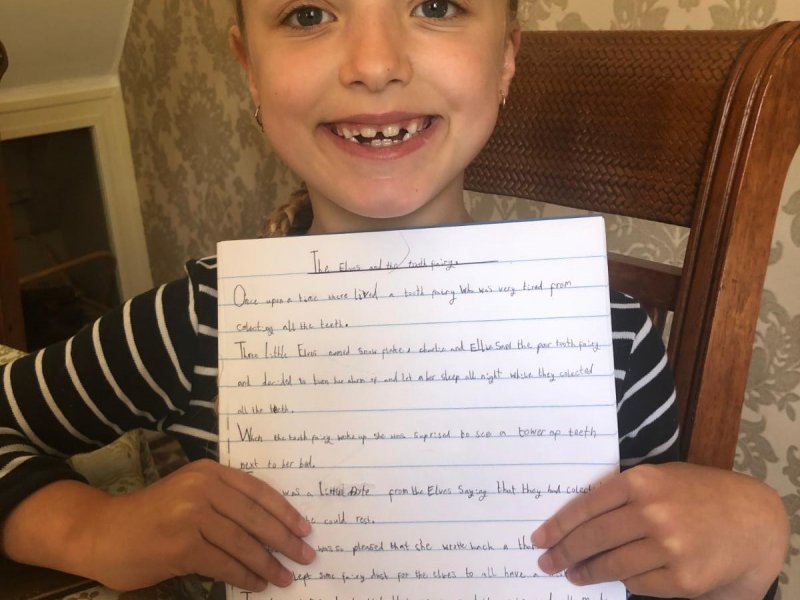 The Elves and the tooth fairy.
Once upon a time there lived a tooth fairy who was very tired from
colecting all the teeth.
Three little Elves named snow flake, charlie and Ellie Saw the poor tooth fairy
and decided to turn her alarm of and let her sleep all night while they colected
all the teeth.
When the tooth fairy woke up she was suprised to see a tower of teeth
next to her bed.
was a little note from the Elves saying that they had colected
he could rest.
was so pleased that she wrote back a
kept some fairy dust for the elves to all have a